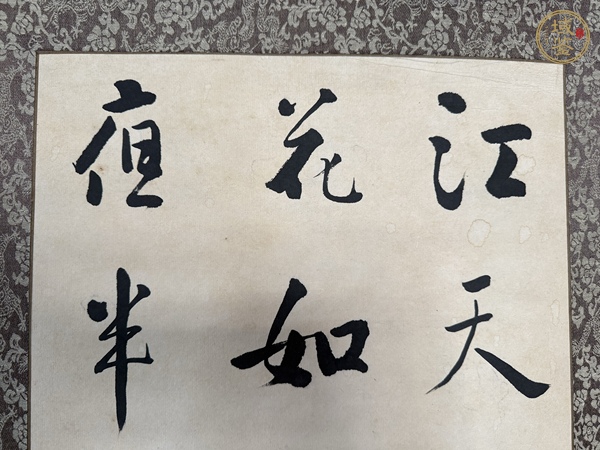 江天
花如
半